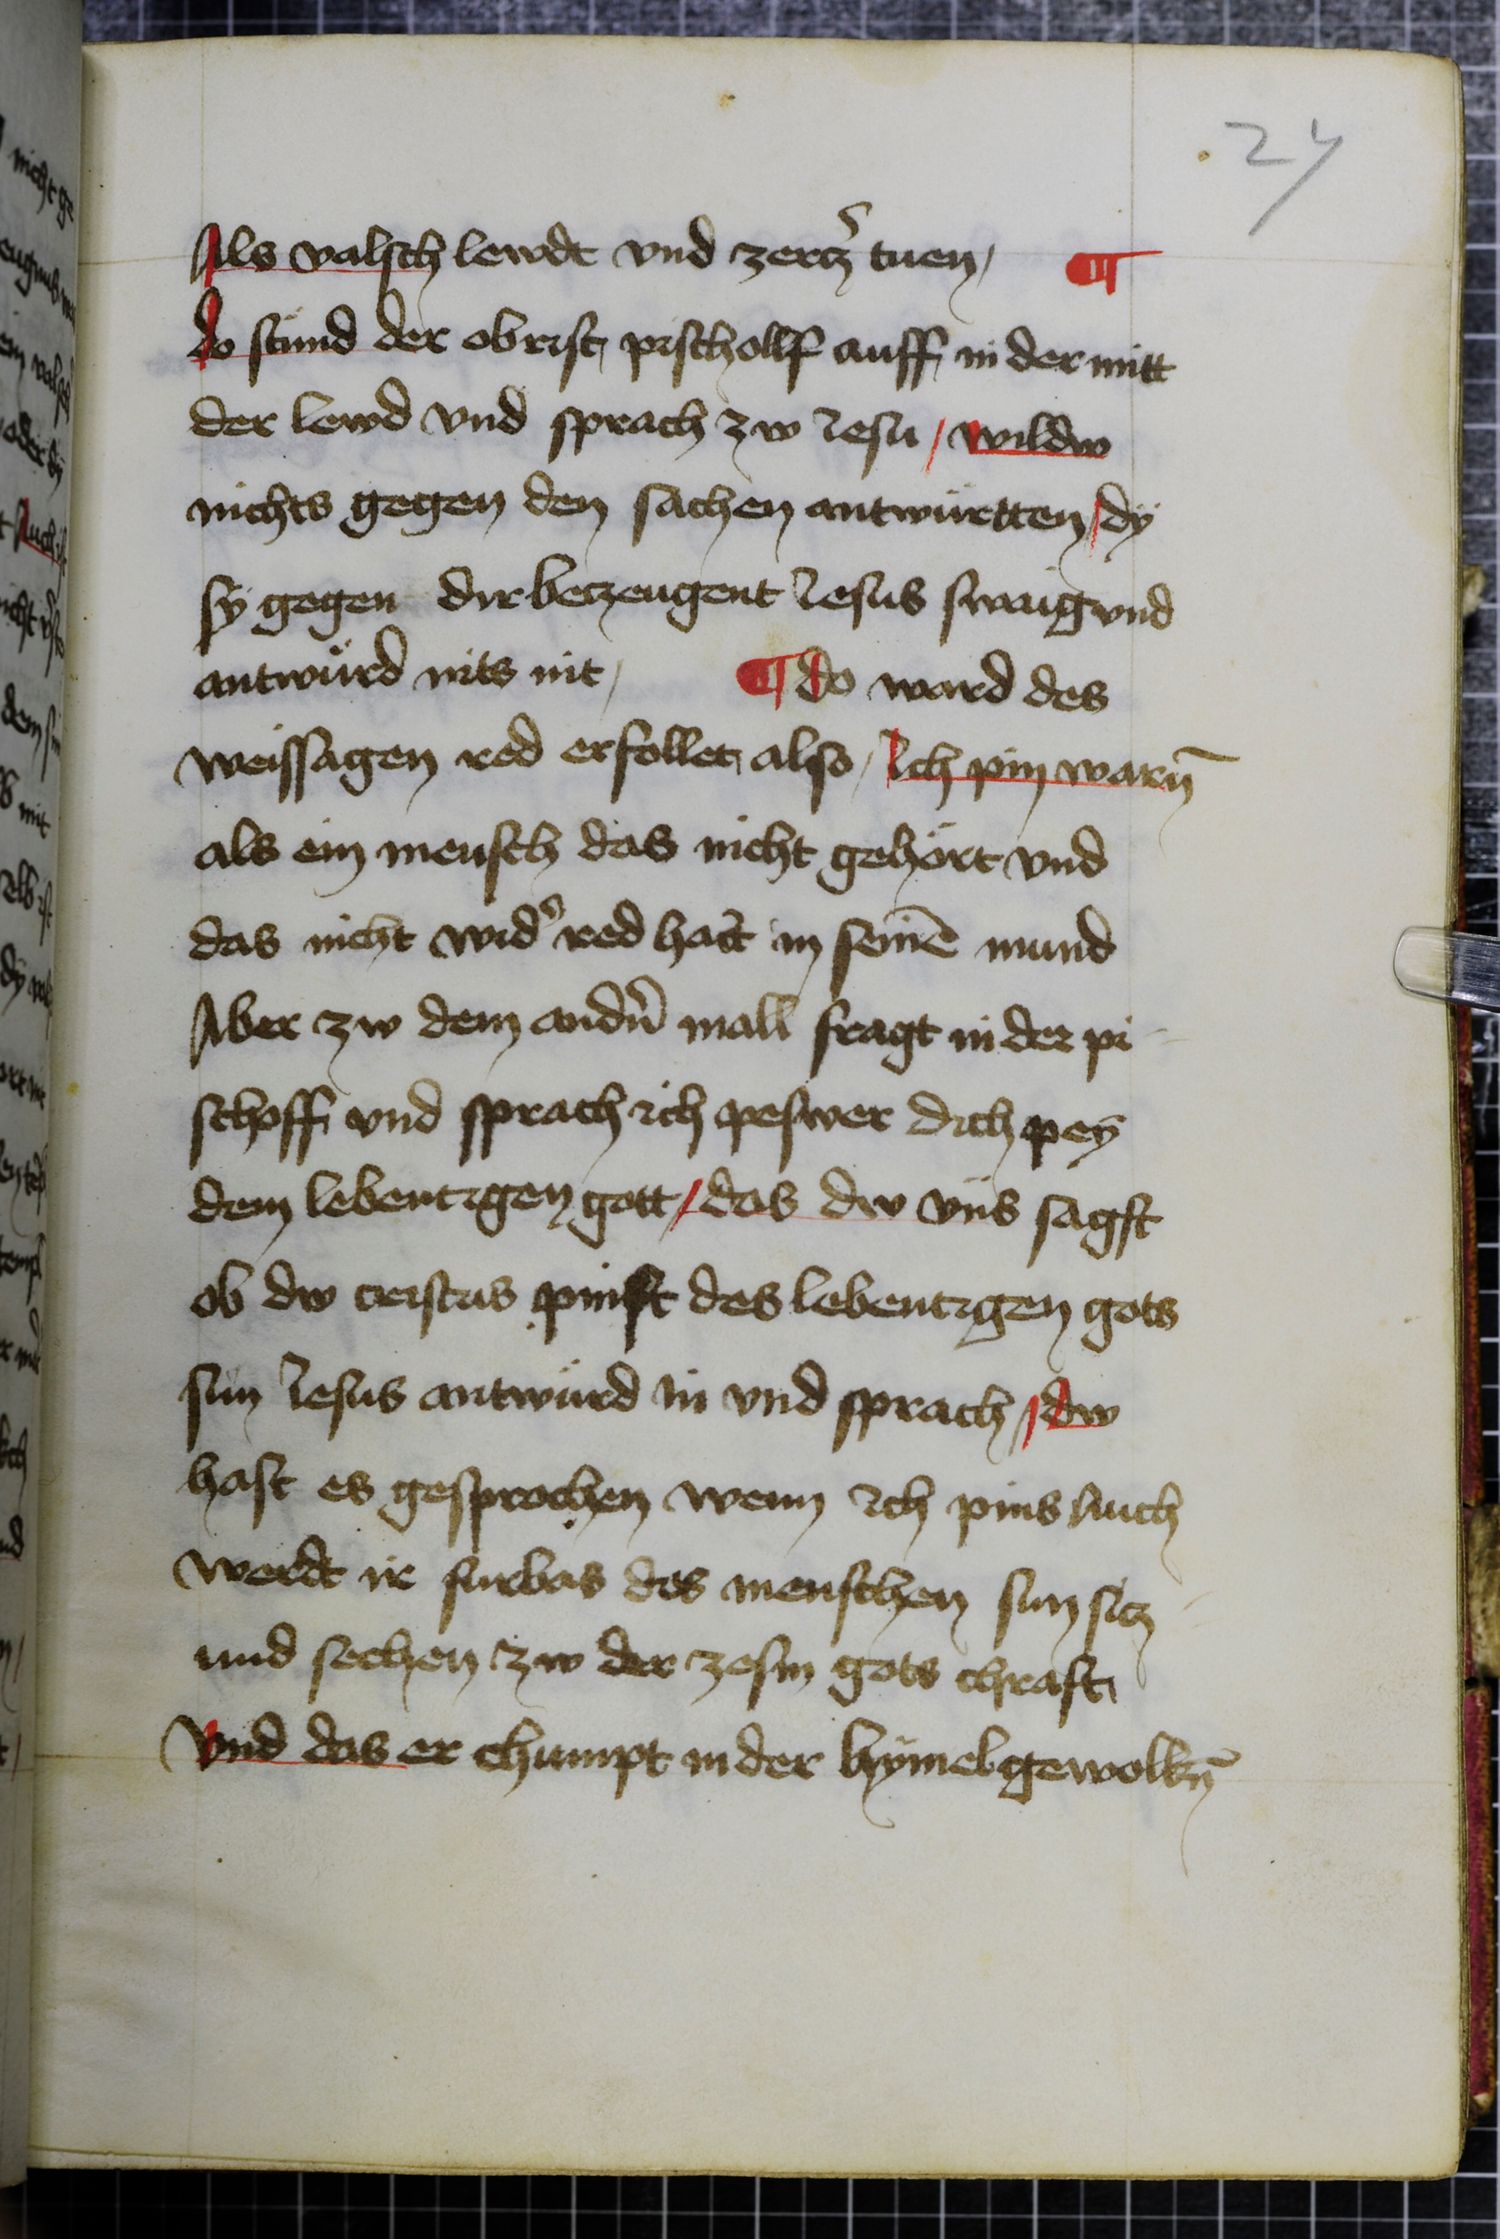 24
Als valsch lewdt vnd zertz̄ tuen /
do stünd der obrist pischollf auff in der mitt
der lewd vnd sprach zw Iesu / wildw
nichts gegen den sachen antwürtten / dÿ
sÿ gegen dir beczeugent Iesus swaig vnd
antwürd nits nit / ¶ do ward des
weissagen red erfollet also / Ich pin warn̄
als ein mensch das nicht gehört vnd
das nicht wid᷑ red hat in seinē mund
Aber zw dem andn̄ mall fragt in der pi-
schoff vnd sprach ich peswer dich peÿ
dem lebentigen gott / das dw vns sagst
ob dw cristus pinst des lebentigen gots
sun Iesus antwürd in vnd sprach / dw
hast es gesprochen wenn ich pins Auch
werdt ir furbas des menschen sun sitz-
und sechen zw der zesm gots chraft
Vnd das er chumpt in der hÿmelgewolkn̄